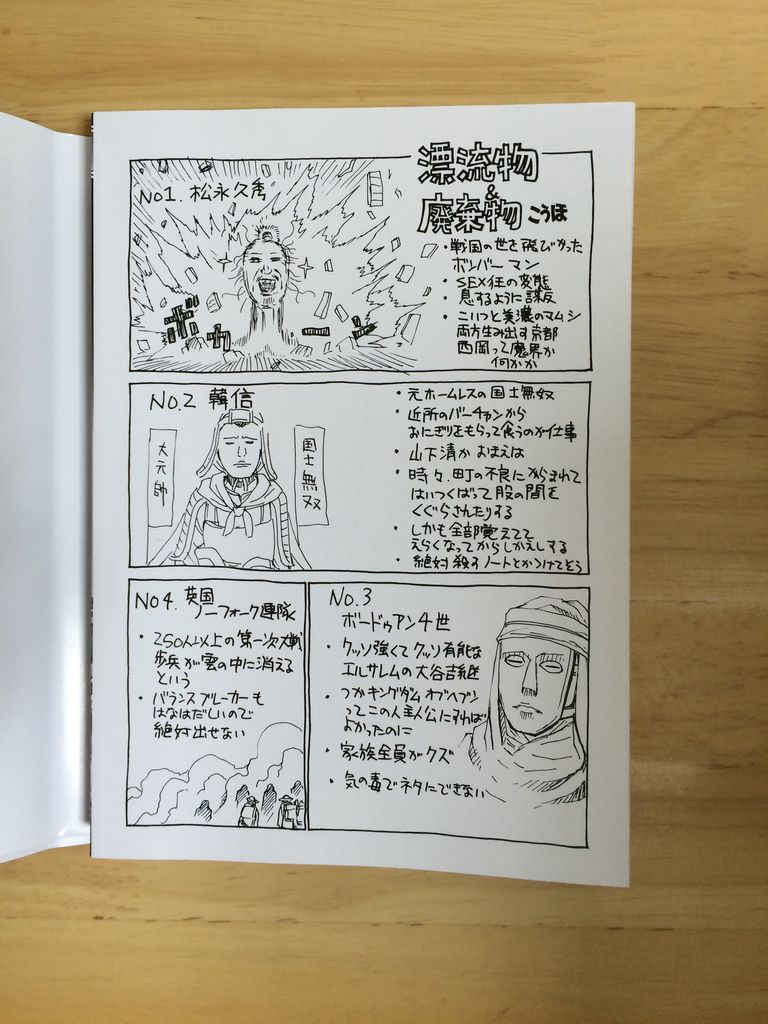 漂流物
&
廃棄物 こうほ
No1. 松永久秀
・戦国の世を飛びかった
ボンバーマン
・SEX狂の変態
・息するように謀反
・こいつと美濃のマムシ
両方生み出す京都
西岡って魔界か
何かか
No.2 韓信
大元帥
国士無双
・元ホームレスの国士無双
・近所のバーチャンから
おにぎりをもらって食うのが仕事
・山下清か おまえは
・時々、町の不良にからまれて
はいつくばって股の間を
くぐらさんたりする
・しかも全部覚えてて
えらくなってからしかえしする
・絶対殺すノートとかつけてそう
No4. 英国
ノーフォーク連隊
・250人以上の第一次大戦
歩兵が雲の中に消える
という
・バランスブレーカーも
はなはだしいので
絶対出せない
No.3
ボードゥアン4世
・クッソ強くてクッソ有能な
エルサレムの大谷吉継
・つかキングダム オブ ヘブン
ってこの人主人公にすれば
よかったのに
・家族全員がクズ
・気の毒でネタにできない